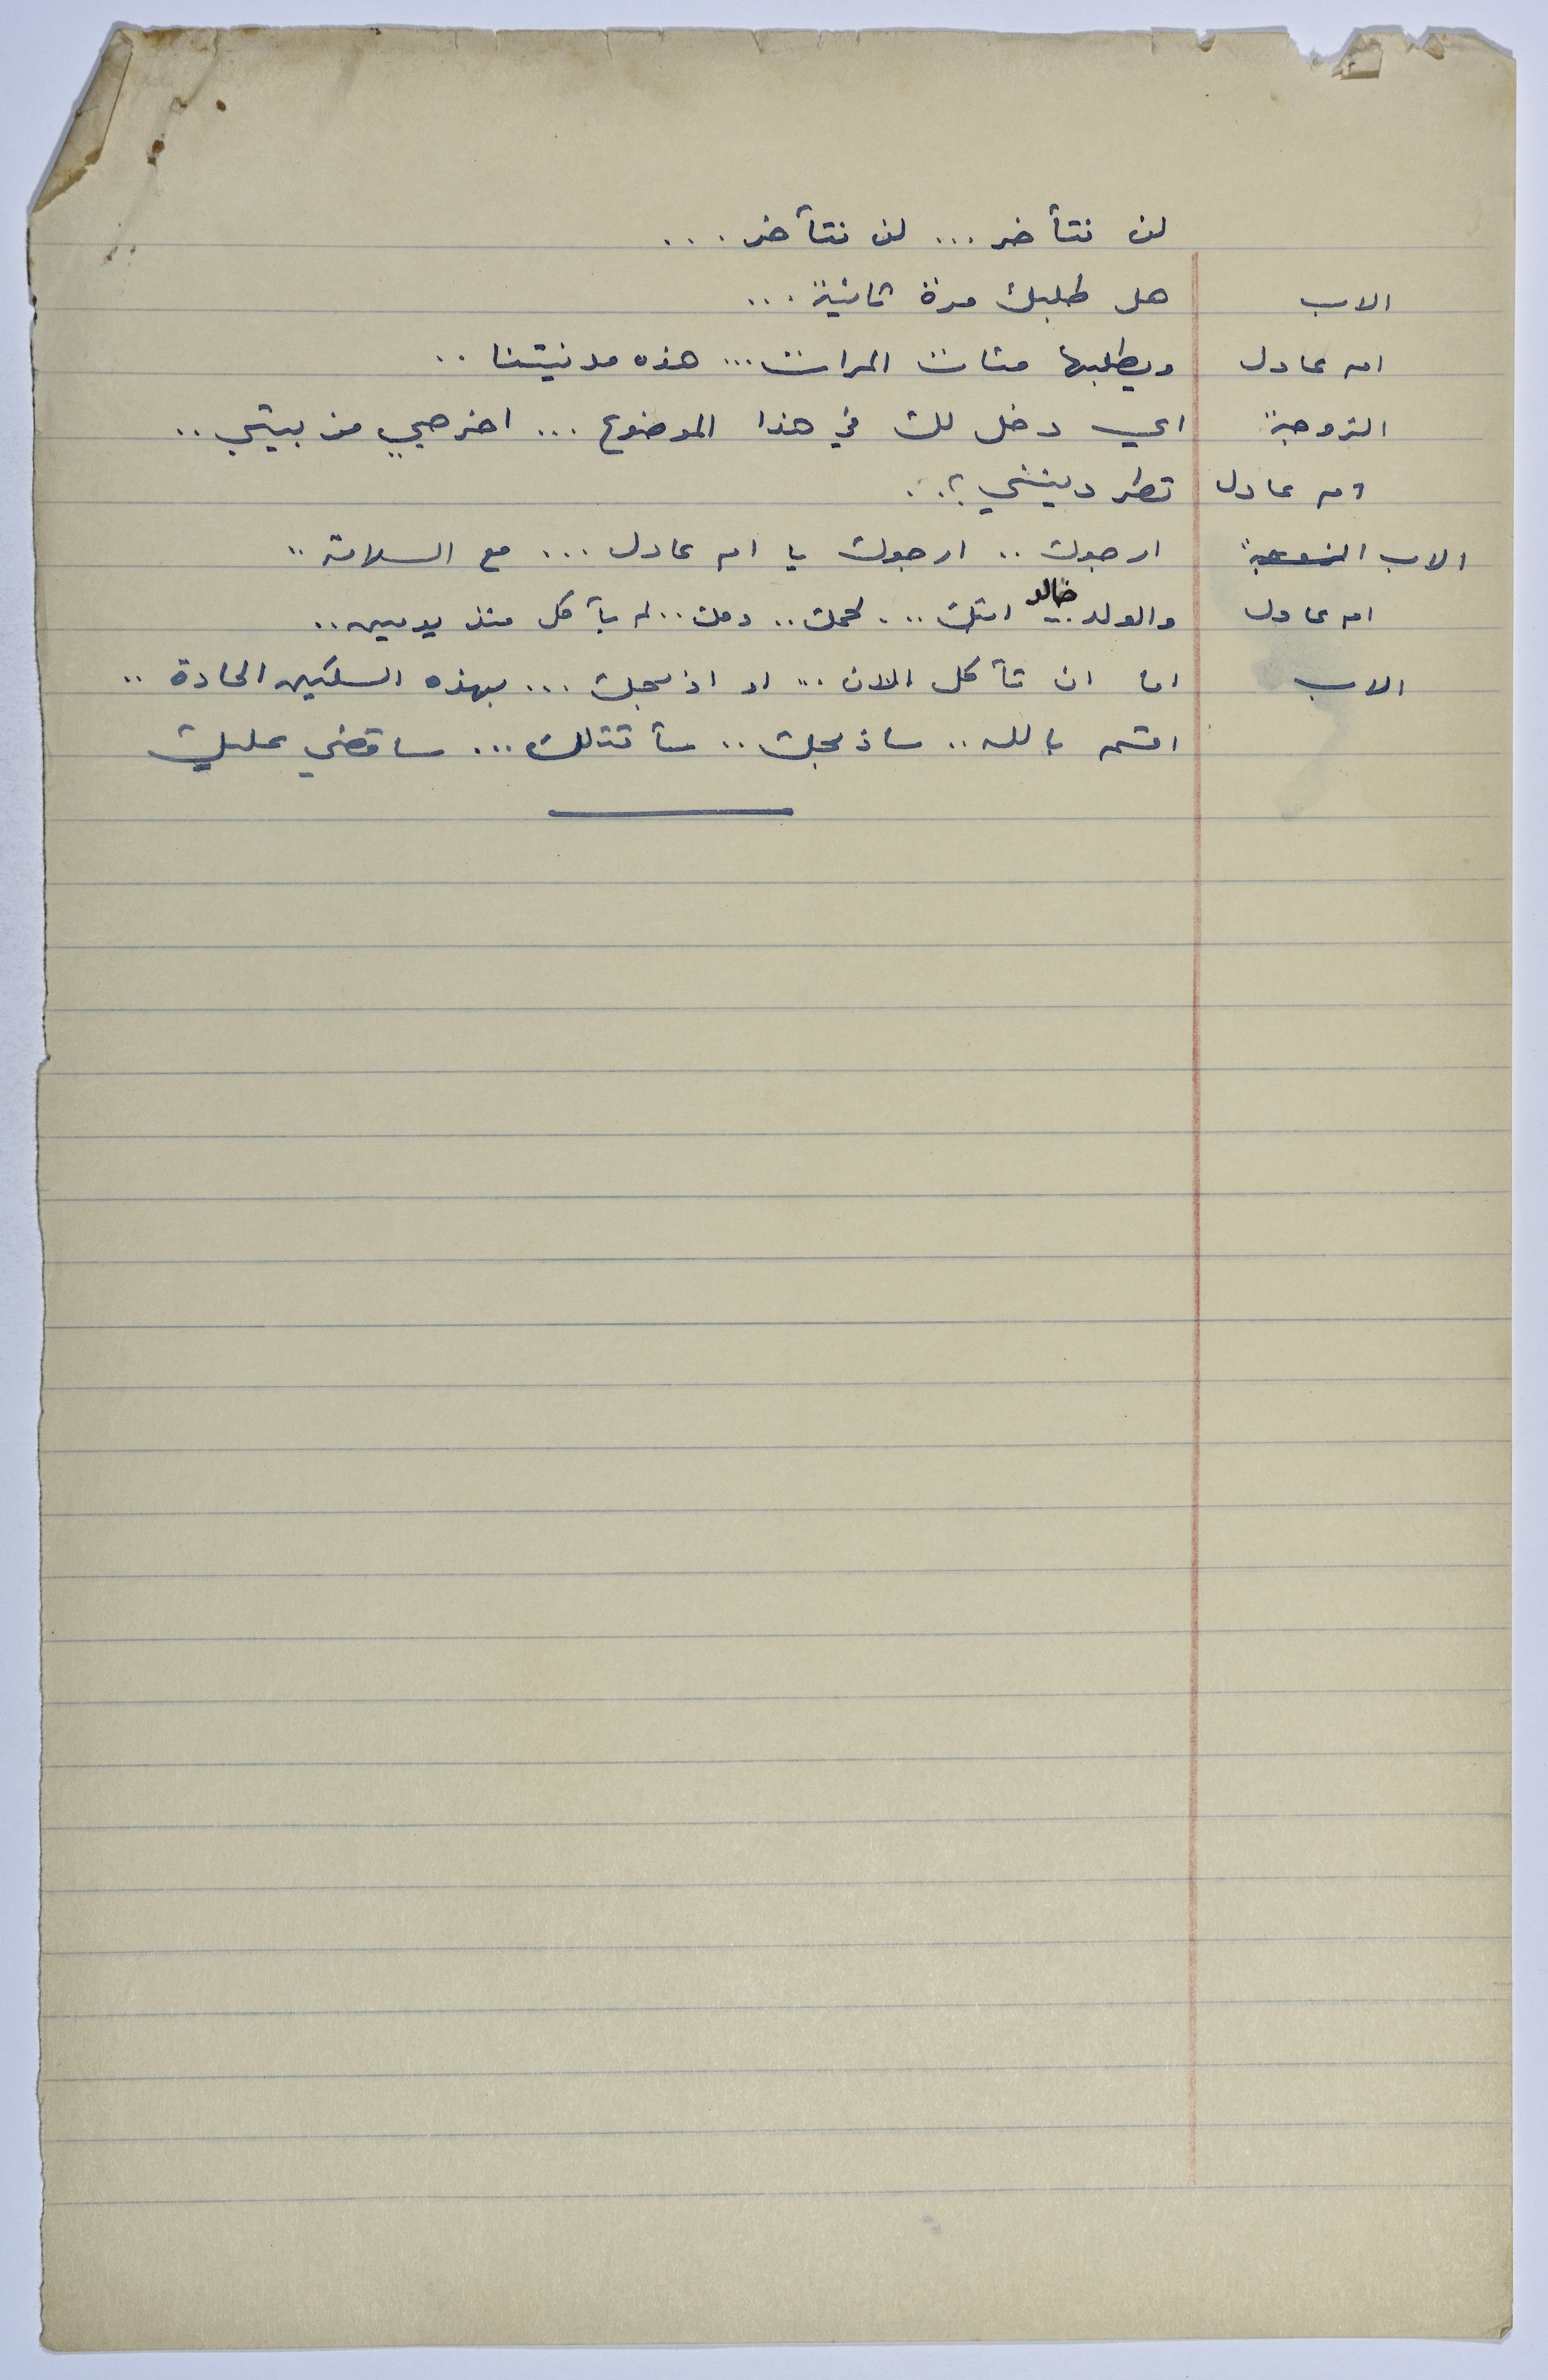 لن نتأخر ... لن نتأخر ...
الاب هل طلبك مرة ثانية ...
ام عادل ويطلبها مئات المرات ... هذه مدنيتنا ..
الزوجة اي دخل لك في هذا الموضوع ... اخرجي من بيتي ..
ام عادل تطردينني ؟ ..
الاب الزوجة ارجوك .. ارجوك يا ام عادل ... مع السلامة ..
ام عادل والولد .. خالد ابنك .. لحمك .. دمك .. لم يأكل منذ يومين ..
الاب اما ان تأكل الان .. او اذبحك ... بهذه السكين الحادة ..
اقسم بالله .. ساذبحك .. سأقتلك ... ساقضي عليك